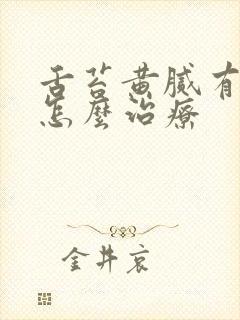 舌苔黄膩有
怎麼治療
金井哀